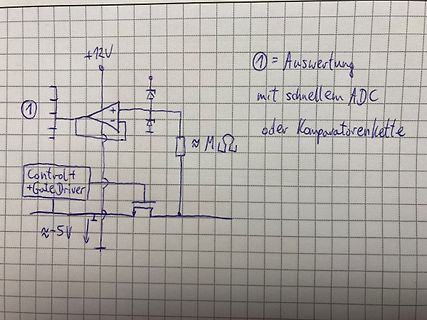 +12V
① = Auswertung
mit schnellem ADC
oder Komparatorenkette
①
+
-
≈ MΩ
Control+
+GateDriver
≈-5V